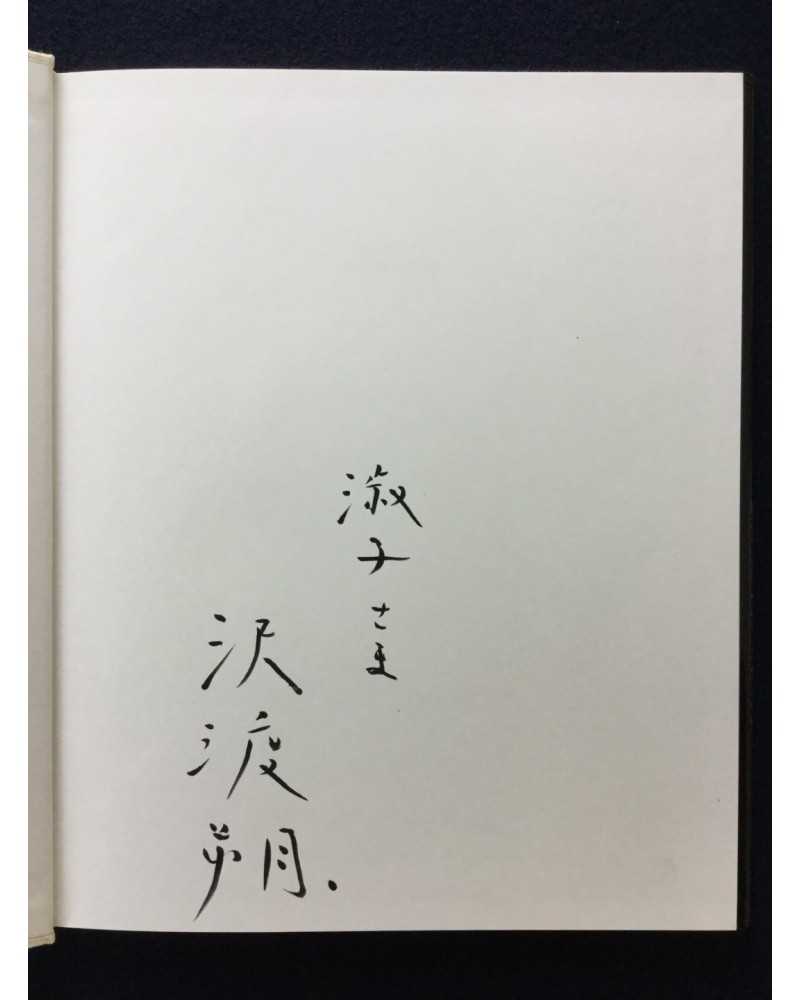 淑子さま
沢渡朔.